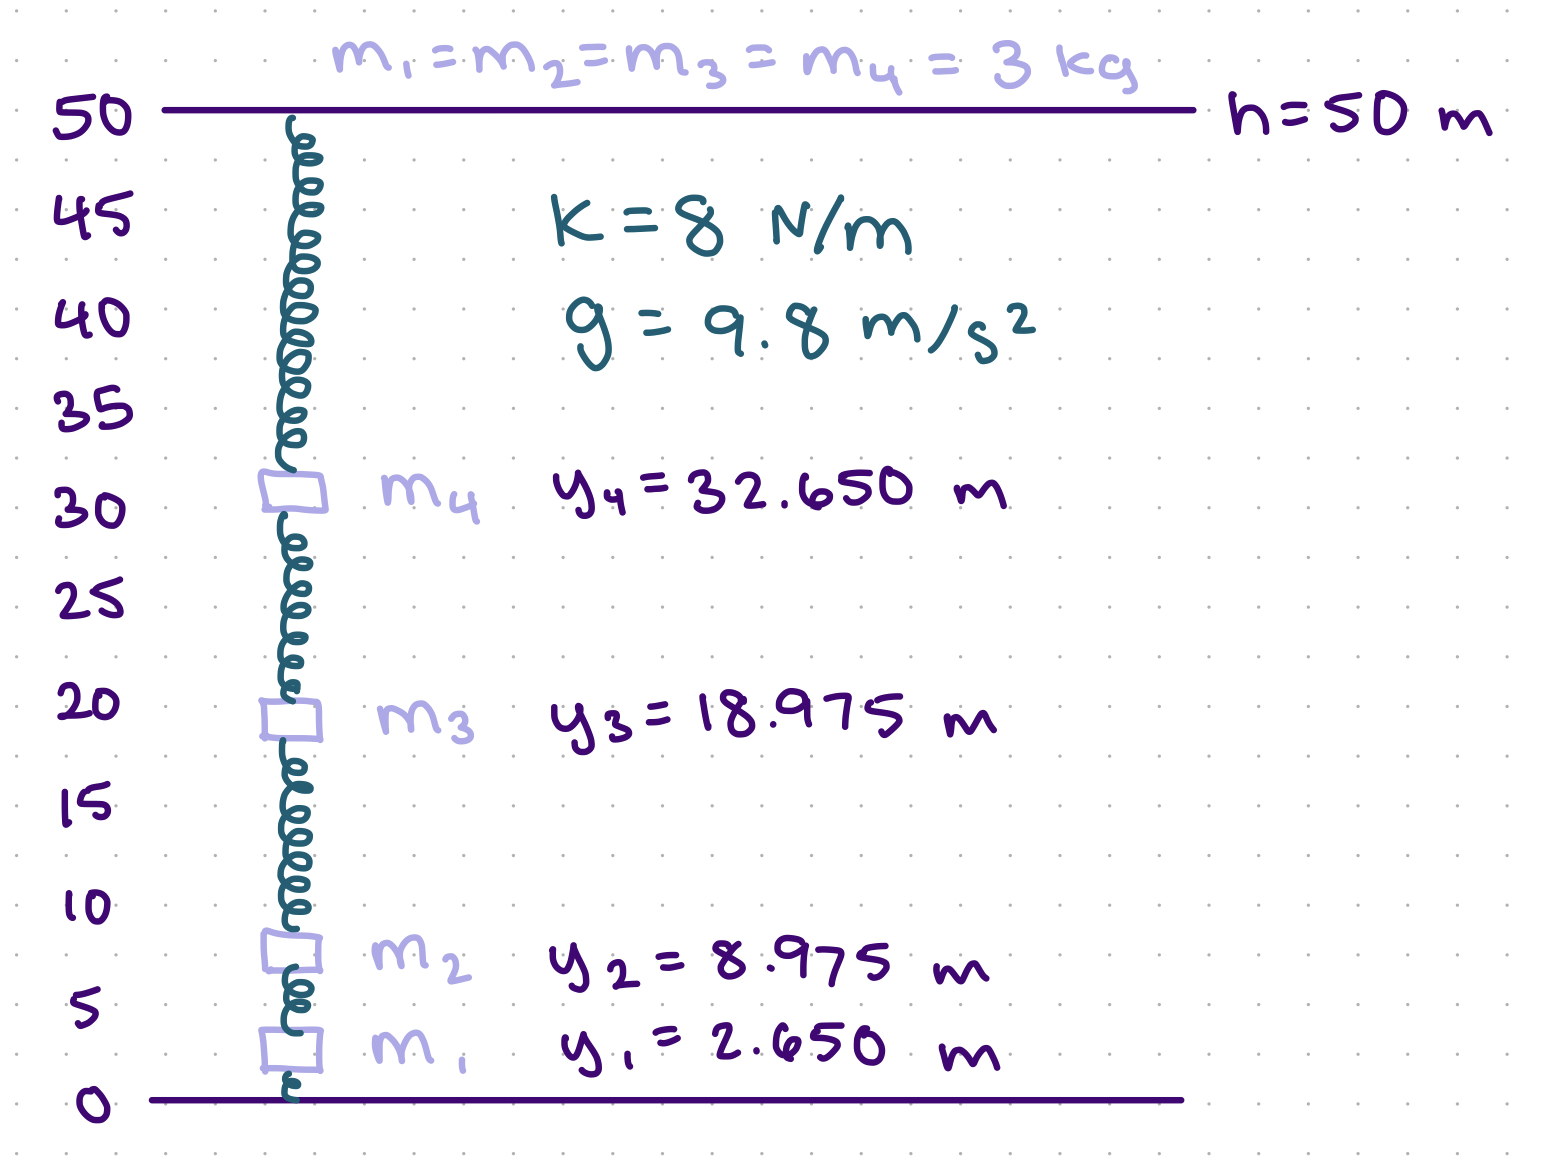 m₁ = m₂ = m₃ = m₄ = 3 kg
50 h = 50 m
45 K = 8 N/m
40 g = 9.8 m/s²
35
30 m₄ y₄ = 32.650 m
25
20 m₃ y₃ = 18.975 m
15
10
m₂ y₂ = 8.975 m
5
m₁ y₁ = 2.650 m
0